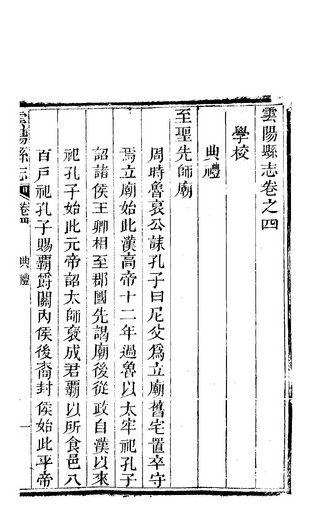 雲陽縣志卷之四
學校
典禮
至聖先師廟
周時魯哀公誄孔子曰尼父爲立廟舊宅置卒守
焉立廟始此漢高帝十二年過魯以太牢祀孔子
詔諸侯王卿相至郡國先謁廟後從政自漢以來
祀孔子始此元帝詔太師褒成君霸以所食邑八
百戸祀孔子賜霸爵關內侯後裔封侯始此平帝
雲陽縣志 卷四 典禮 一